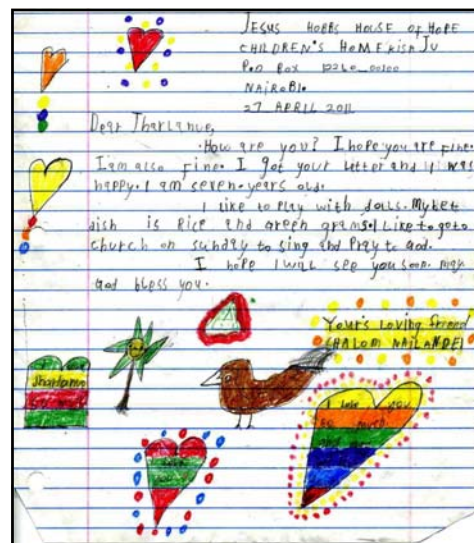 JESUS HOBBS HOUSE OF HOPE
CHILDREN'S HOME KISAJU
P.O BOX 1326O_00100
NAIROBI.
27 APRIL 2011
Dear Tharlanue,
How are you? I hope you are fine.
I am also fine. I got your letter and I was
happy. I am seven years old.
I like to play with dolls. My bet
dish is Rice and green grams. I Like to go to
church on sunday to sing and Pray to God.
I hope I will see you soon. may
God bless you.
Your's Loving friend
SHALOM NAILANDEI
Love you
so much